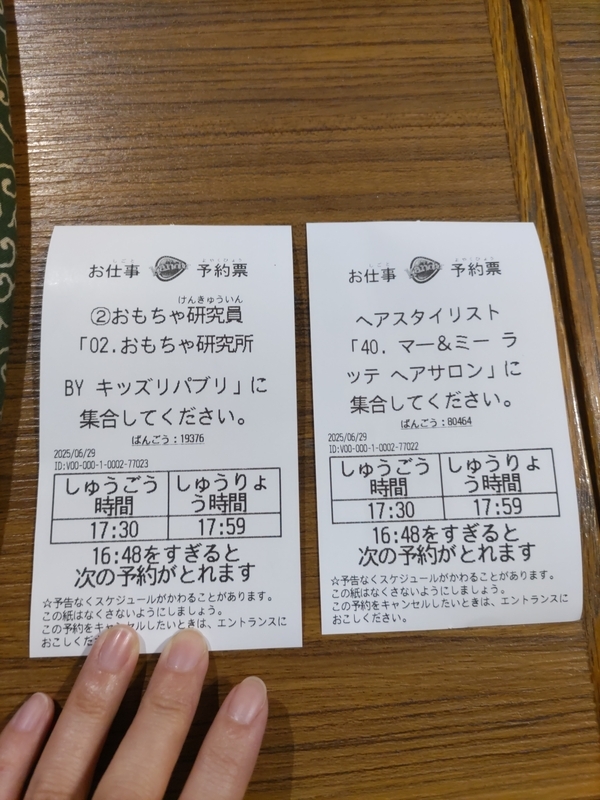 しごと よやくひょう
お仕事 予約票
けんきゅういん
②おもちゃ研究員
「02.おもちゃ研究所
BY キッズリパブリ」に
集合してください。
ばんごう:19376
2025/06/29
ID:V00-000-1-0002-77023
しゅうごう時間 しゅうりょう時間
17:30 17:59
16:48をすぎると
次の予約がとれます
☆予告なくスケジュールがかわることがあります。
この紙はなくさないようにしましょう。
この予約をキャンセルしたいときは、エントランスに
おこしくだ
しごと よやくひょう
お仕事 予約票
ヘアスタイリスト
「40. マー&ミー ラ
ッテ ヘアサロン」に
集合してください。
ばんごう:80464
2025/06/29
ID:V00-000-1-0002-77022
しゅうごう時間 しゅうりょう時間
17:30 17:59
16:48をすぎると
次の予約がとれます
☆予告なくスケジュールがかわることがあります。
この紙はなくさないようにしましょう。
この予約をキャンセルしたいときは、エントランスに
おこしください。